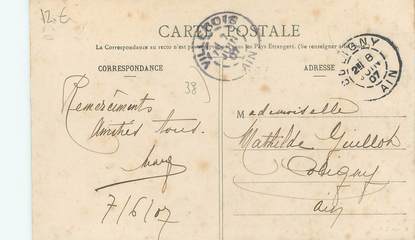 12.€
CARTE POSTALE
La Correspondance au recto n'est pas pour les Pays Etrangers. (Se renseigner à la
CORRESPONDANCE
ADRESSE
VILLEBOIS
07
AIN
COLIGNY
8
JUIN
07
AIN
38
Remerciements
Amitiés tous.
7/6/07
Mademoiselle
Mathilde Guillot
Coligny
Ain